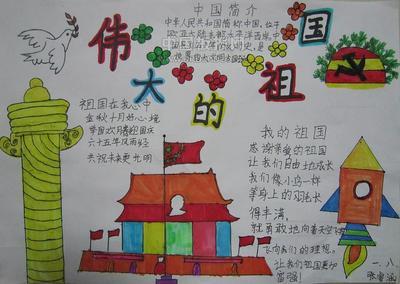 中国简介
中华人民共和国简称中国,位于
欧亚大陆东部太平洋西岸,中
伟大的祖国
祖国在我心中
金秋十月好心境
举国欢腾迎国庆
六十五年风雨经
共祝未来更光明
我的祖国
感谢亲爱的祖国
让我们自由地成长
我们像小鸟一样
等身上的羽毛长
得丰满,
就勇敢地向着天空飞
飞向我们的理想。
让我们祖国更加
富强!
一、八